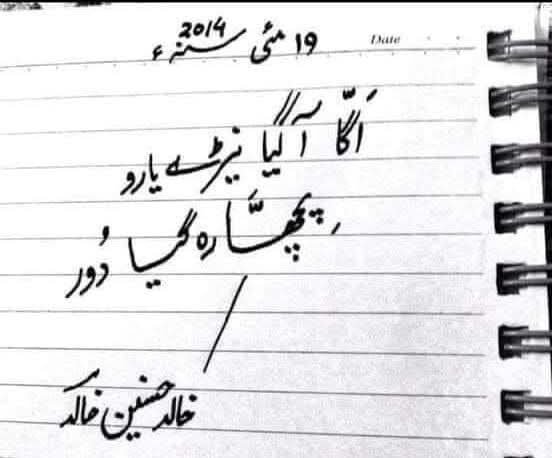 Date
۱۹ مئی سنہ 2014ء
اَگّا آ گیا نیڑے یارو
پِچھّا رہ گیا دُور
خالد حسنین خالد